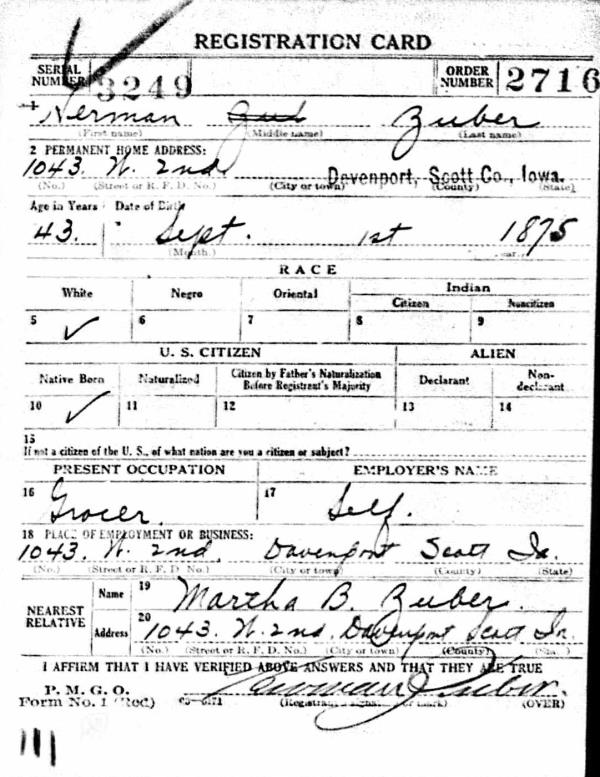 REGISTRATION CARD
SERIAL NUMBER 3249 ORDER NUMBER 2716
1 Herman Zuber
(First name) (Middle name) (Last name)
2 PERMANENT HOME ADDRESS:
1043. W. 2nd Davenport, Scott Co., Iowa.
(No.) (Street or R. F. D. No.) (City or town) (County) (State)
Age in Years Date of Birth
43. Sept. 1st 1875
(Month.)
RACE
White Negro Oriental Indian
Citizen Noncitizen
5 ✓ 6 7 8 9
U. S. CITIZEN ALIEN
Native Born Naturalized Citizen by Father's Naturalization Before Registrant's Majority Declarant Non-declarant
10 ✓ 11 12 13 14
15
If not a citizen of the U. S., of what nation are you a citizen or subject?
PRESENT OCCUPATION EMPLOYER'S NAME
16 Grocer. 17 Self.
18 PLACE OF EMPLOYMENT OR BUSINESS:
1043. W. 2nd, Davenport Scott Ia.
(No.) (Street or R. F. D. No.) (City or town) (County) (State)
NEAREST RELATIVE Name 19 Martha B. Zuber.
Address 20 1043. W. 2nd. Davenport Scott Ia.
(No.) (Street or R. F. D. No.) (City or town) (County) (State)
I AFFIRM THAT I HAVE VERIFIED ABOVE ANSWERS AND THAT THEY ARE TRUE
P. M. G. O.
Form No. 1 (Red) (Registrant's signature or mark) (OVER)